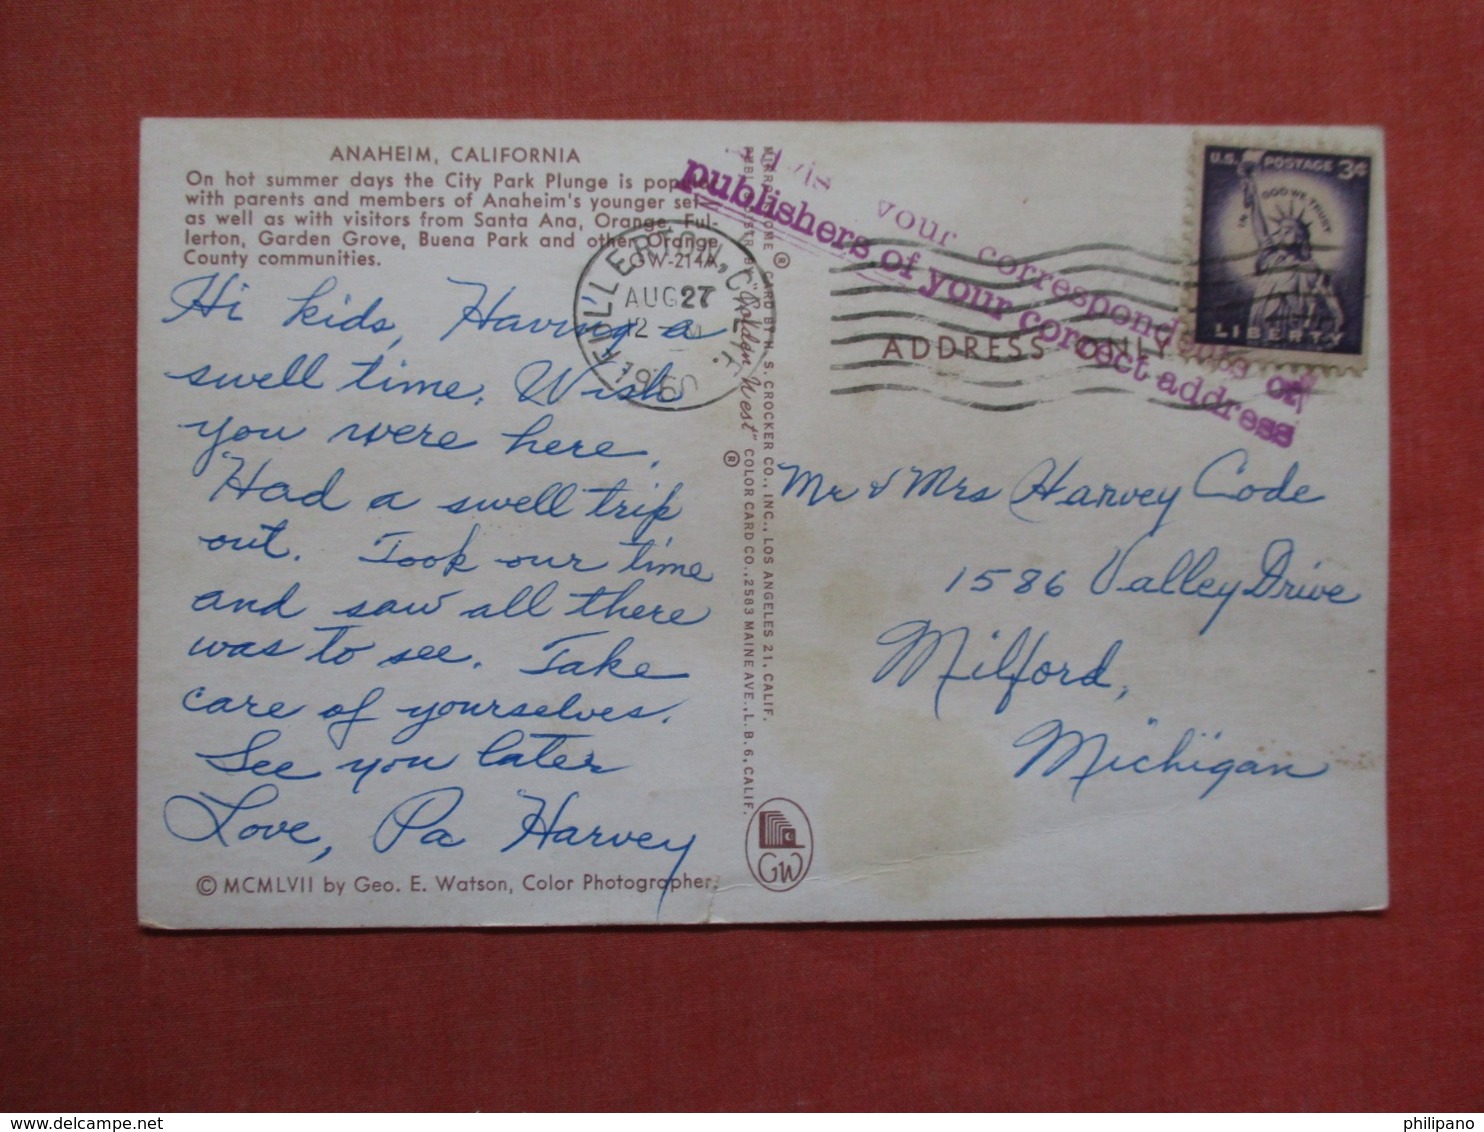 ANAHEIM, CALIFORNIA
On hot summer days the City Park Plunge is popular
with parents and members of Anaheim's younger set
as well as with visitors from Santa Ana, Orange, Ful-
lerton, Garden Grove, Buena Park and other Orange
County communities. GW-214A
Hi kids, Having a
swell time. Wish
you were here.
Had a swell trip
out. Took our time
and saw all there
was to see. Take
care of yourselves.
See you later
Love, Pa Harvey
© MCMLVII by Geo. E. Watson, Color Photographer.
FULLERTON, CALIF.
AUG 27
12 M
1960
"Golden West" ® COLOR CARD CO., 2583 MAINE AVE., L. B. 6, CALIF.
® CARD BY H. S. CROCKER CO., INC., LOS ANGELES 21, CALIF.
GW
your correspondents or
publishers of your correct address
U.S. POSTAGE 3¢
IN GOD WE TRUST
LIBERTY
ADDRESS ONLY
Mr & Mrs Harvey Code
1586 Valley Drive
Milford,
Michigan
philipano